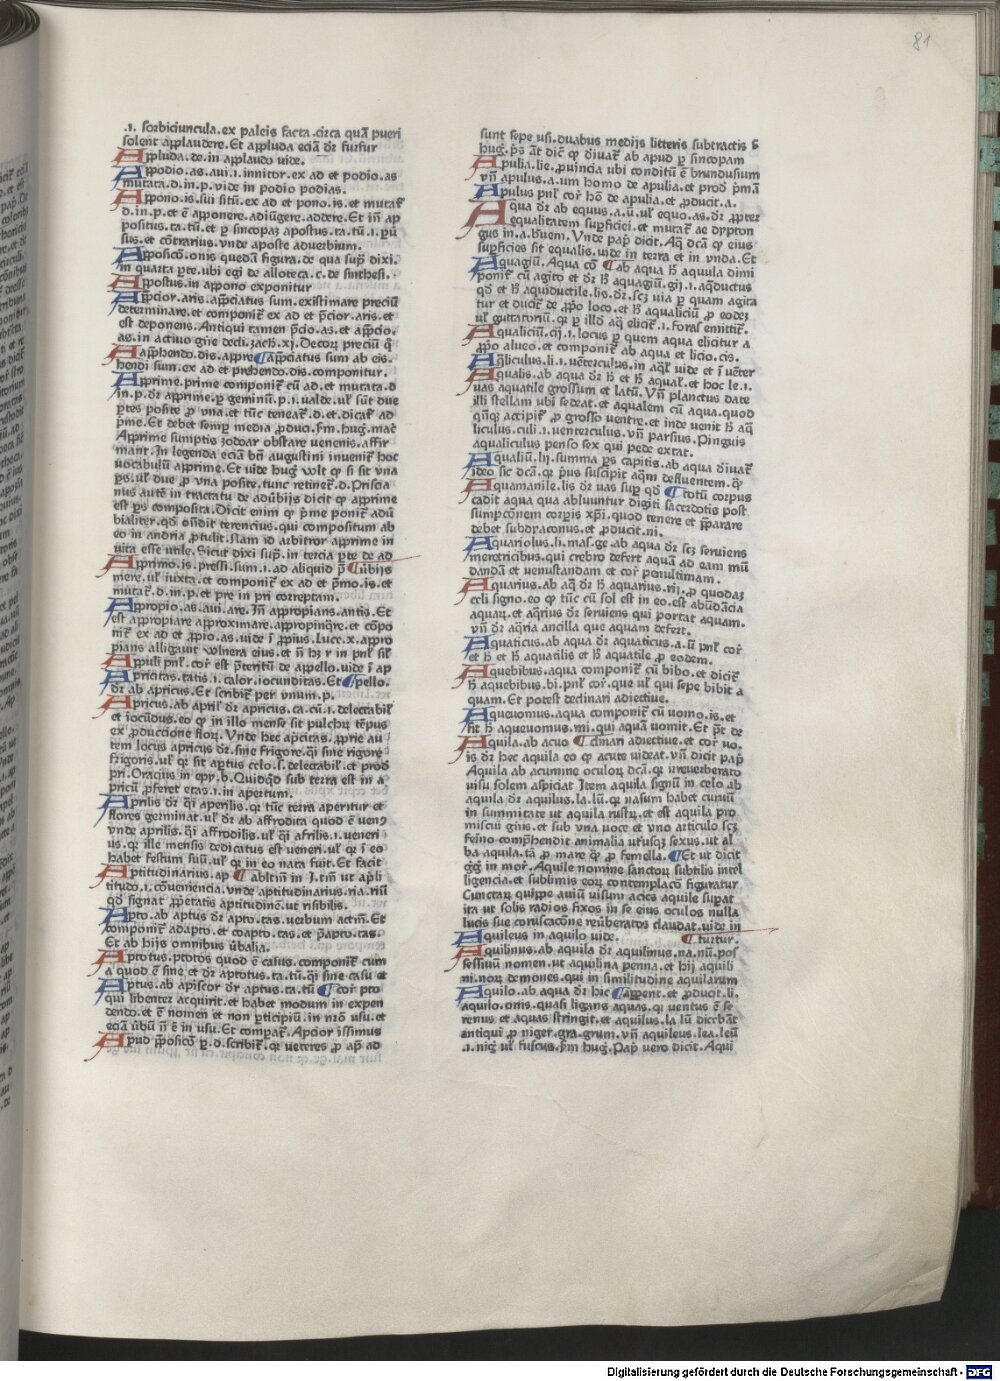 81
.i. sorbiciuncula.ex paleis facta.circa quā pueri
solent applaudere.Et appluda eciā dr̄ furfur
Appluda.de.in applaudo vide.
Appodio.as.aui.i.innitor.ex ad et podio.as
mutata.d.in.p.vide in podio podias.
Appono.is.sui sitū.ex ad et pono.is.et mutat᷑
d.in.p.et ē apponere.adiūgere.addere.Et in̄ ap
positus.ta.tū.et p̱ sincopaȝ apostus.ta.tū.i.
sus.et cōtrarius.vnde aposte aduerbium.
Apposicō.onis quedā figura.de qua sup̄ dixi.
in quarta p̱te.ubi egi de alloteca.c.de sinthesi.
Appostus.in appono exponitur
Apcior.aris.app̄ciatus sum.existimare preciū
determinare.et componit᷑ ex ad et p̄cior.aris.et
est deponens.Antiqui tamen p̄cio.as.et app̄cio.
as.in actiuo gn̄e decli.zach.xj.Decoꝝ preciū q̄
App̄hendo.dis.appre ¶app̄ciatus sum ab eis.
hendi sum.ex ad et prehendo.dis.componitur.
Apprime.prime componit᷑ cū ad.et mutata.d
in.p.dr̄ apprime.p̱ geminū.p.i.valde.ul᷑ sūt due
p̱tes posite ꝓ vna.et tūc teneat᷑.d.et dicat᷑ ad
p̄me.Et debet semp̱ media ꝓduci.
Apprime sumptis zodoar obstare venenis.affir
mant.In legenda eciā bn̄ augustini inuenit᷑ hoc
vocabulū apprime.Et vide hug᷑ volt ꝙ si sit vna
p̱s.ul᷑ due ꝓ vna posite.tunc retinet᷑.d.Priscia
nus autē in tractatu de adūbijs dicit ꝙ apprime
est p̱s composita.Dicit enim ꝙ p̄me ponit᷑ adū
bialiter.qd̄ on̄dit terencius.qui compositum ab
eo in andria ꝓtulit.Nam id arbitror apprime in
uita esse utile.Sicut dixi sup̄.in tercia p̱te de ad
Apprimo.is.pressi.sum.i.ad aliquid p̄ ¶ūbijs
mere.ul᷑ iuxta.et componit᷑ ex ad et p̄mo.is.et
mutat᷑.d.in.p.et pre in pri correptam.
Appropio.as.aui.are.In̄ appropians.antis.Et
est appropiare approximare.appropinq̄re.et cōpo
nit᷑ ex ad et ꝓpio.as.vide ī ꝓpius.Luce.x.appro
pians alligauit vulnera eius.et
Appuli pnl᷑.cor̄ est p̄teritū de appello.vide ī ap
Apricitas.tatis.i.calor.iocunditas.Et ¶pello.
dr̄ ab apricus.Et scribit᷑ per vnum.p.
Apricus.ab april᷑ dr̄ apricus.ca.cū.i.delectabil᷑
et iocūdus.eo ꝙ in illo mense sit pulchꝝ tēpus
ex ꝓduccione floꝝ.Vnde hec ap̄citas.ꝓprie au
tem locus apricus dr̄.sine frigore.q̄i sine rigore
frigoris.ul᷑ qr̄ sit ap̱tus celo.s.delectabil᷑.et prod᷑
pri.Oracius in epp̄.b.Quidq̄d sub terra est in a
pricū ꝓferet etas.i.in apertum.
Aprilis dr̄ q̄i aperilis.qr̄ tūc terra aperitur et
flores germinat.ul᷑ dr̄ ab affrodita quod ē uenꝯ
vnde aprilis.q̄i affrodilis.ul᷑ q̄i afrilis.i.ueneri
us.qr̄ ille mensis dedicatus est ueneri.ul᷑ qr̄ ī eo
habet festum suū.ul᷑ qr̄ in eo nata fuit.Et facit
Aptitudinarius.ap ¶ ablt̄m in J.tm̄ ut apli
titudo.i.cōueniencia.vnde aptitudinarius.ria.riū
qd̄ signat ꝓp̱etatis aptitudinē.ut risibilis.
Apto.ab aptus dr̄ apto.tas.uerbum actm̄.Et
componit᷑ adapto.et coapto.tas.et p̄apto.tas.
Et ab hijs omnibus ūbalia.
Aptotus.ptotos quod ē casus.componit᷑ cum
a quod ē sine et dr̄ aptotus.ta.tū.q̄i sine casu et
Aptus.ab apiscor dr̄ aptus.ta.tū ¶ cor̄ pto
qui libenter acquirit.et habet modum in expen
dendo.et ē nomen et non p̱ticipiū.in nr̄o usu.et
eciā ūbū n̄ ē in usu.Et compat᷑.Aptior issimus
Apud p̄posicō p̱.d.scribit᷑.qr̄ ueteres ꝓ ap̄ ad
sunt sepe usi.duabus medijs litteris subtractis
hug᷑.p̄s āt dic̄ ꝙ d̄iuat᷑ ab apud p̱ sincopam
Apulia.lie.ꝓuincia ubi conditū ē brundusium
vn̄ apulus.a.um homo de apulia.et prod᷑ p̄mā
Apulus pnl᷑ cor̄ hō de apulia.et ꝓducit.a.
Aqua dr̄ ab equus.a.ū.ul᷑ equo.as.dr̄.ꝓpter
equalitatem sup̱ficiei.et mutat᷑ ae dypton
gus in.a.b̄uem.Vnde pap̄ dicit.Aq̄ dc̄a ꝙ eius
sup̱ficies sit equalis.uide in terra et in vnda.Et
Aquagiū.Aqua cō ¶ab aqua ħ aquula dimi
ponit᷑ cū agito et dr̄ ħ aquagiū.gij.i.aq̄ductus
qd̄ et ħ aquiductile.lis.dr̄.scȝ uia p̱ quam agita
tur et ducit᷑ de ꝓpo loco.et ħ aqualiciū ꝓ eodeȝ
ul᷑ guttatoriū.qr̄ p̱ illd̄ aq̄ elicit᷑.i.foras emittit᷑.
Aqualiciū.cij.i.locus p̱ quem aqua elicitur a
ꝓpo alueo.et componit᷑ ab aqua et licio.cis.
Aq̄liculus.li.i.uēterculus.in aql̄᷑ uide et ī uēter
Aqualis.ab aqua dr̄ ħ et ħ aqual᷑.et hoc le.i.
uas aquatile grossum et latū.Vn̄ planctus date
illi stellam ubi sedeat.et aqualem cū aqua.quod
qn̄qȝ accipit᷑ ꝓ grosso ventre.et inde venit ħ aq̄
liculus.culi.i.uenterculus.vn̄ parsius.Pinguis
aqualiculus penso sex qui pede extat.
Aqualiū.lij.summa p̱s capitis.ab aqua d̄iuat᷑
ideo sic dc̄a.qr̄ p̱us suscipit aq̄m defluentem.q̄r
Aquamanile.lis dr̄ uas sup̱ qd̄ ¶totū corpus
cadit aqua qua abluuntur digiti sacerdotis post
sumpcōnem corp̱is xp̄i.quod tenere et p̄parare
debet subdiaconus.et ꝓducit.ni.
Aquariolus.li.mas.ge.ab aqua dr̄ scȝ seruiens
meretricibus.qui crebro defert aquā ad eam mū
dandā et venustandam et cor̄ penultimam.
Aquarius.ab aq̄ dr̄ ħ aquarius.rij.ꝓ quodaȝ
celi signo.eo ꝙ tūc cū sol est in eo.est abūd̄acia
aquaꝝ.et aq̄rius dr̄ seruiens qui portat aquam.
vn̄ dr̄ aq̄ria ancilla que aquam defert.
Aquaticus.ab aqua dr̄ aquaticus.a.ū pnl᷑ cor̄
et ħ et ħ aquatilis et ħ aquatile ꝓ eodem.
Aquebibus.aqua componit᷑ cū bibo.et dicit᷑
ħ aquebibus.bi.pnl᷑ cor̄.que ul᷑ qui sepe bibit a
quam.Et potest declinari adiectiue.
Aqueuomus.aqua componit᷑ cū uomo.is.et
fit ħ aqueuomus.mi.qui aquā uomit.Et pt̄ de
Aquila.ab acuo ¶clinari adiectiue.et cor̄ uo.
is dr̄ hec aquila eo ꝙ acute uideat.vn̄ dicit pap̄
Aquila ab acumine oculoꝝ dc̄a.qr̄ irreuerberato
uisu solem aspiciat Jtem aquila signū in celo ab
aquila dr̄ aquilus.la.lū.qr̄ nasum habet curuū
in summitate ut aquila rustꝝ.et est aquila pro
miscui gn̄is.et sub vna uoce et vno articulo scȝ
fēino comp̄hendit animalia ut᷑usqȝ sexus.ut al
ba aquila.tā ꝓ mare q̄ ꝓ femella.¶Et ut dicit
gg᷑ in mor̄.Aquile nomine sanctoꝝ subtilis intel
ligencia.et sublimis eoꝝ contemplacō figuratur
Cunctaꝝ quippe auiū uisum acies aquile sup̱at
ita ut solis radios fixos in se eius oculos nulla
lucis sue coruscacōne reūberatos claudat.vide in
Aquileus in aquilo uide. ¶ furfur.
Aquilinus.ab aquila dr̄ aquilinus.na.nū.pos
sessiuū nomen.ut aquilina penna.et hij aquili
ni.noꝝ demones.qui in similitudine aquilarum
Aquilo.ab aqua dr̄ hic ¶app̱ent.et ꝓducit.li.
aquilo.onis.quasi ligans aquas.qr̄ uentus ē se
renus et aquas stringit.et aquilus.la lū dicebāt
antiqui ꝓ niger.gra.grum.vn̄ aquileus.lea.leū
.i.nig᷑ ul᷑ fuscus.ẜm hug᷑.Pap̄ uero dicit.Aqui
Digitalisierung gefördert durch die Deutsche Forschungsgemeinschaft - DFG